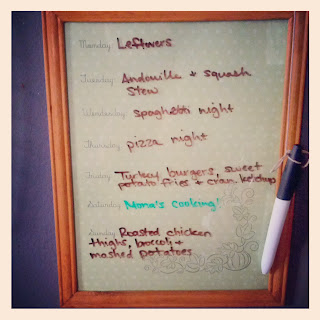 Monday Leftovers
Tuesday Andouille + squash
stew
Wednesday spaghetti night
Thursday pizza night
Friday Turkey burgers, sweet
potato fries + cran ketchup
Saturday Mona's cooking!
Sunday Roasted chicken
thighs, broccoli +
mashed potatoes